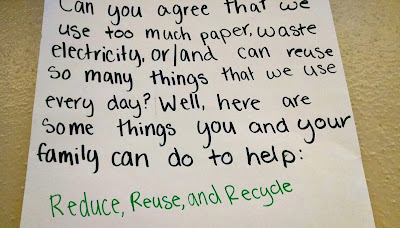 Can you agree that we
use too much paper, waste
electricity, or/and can reuse
so many things that we use
every day? Well, here are
some things you and your
family can do to help:
Reduce, Reuse, and Recycle